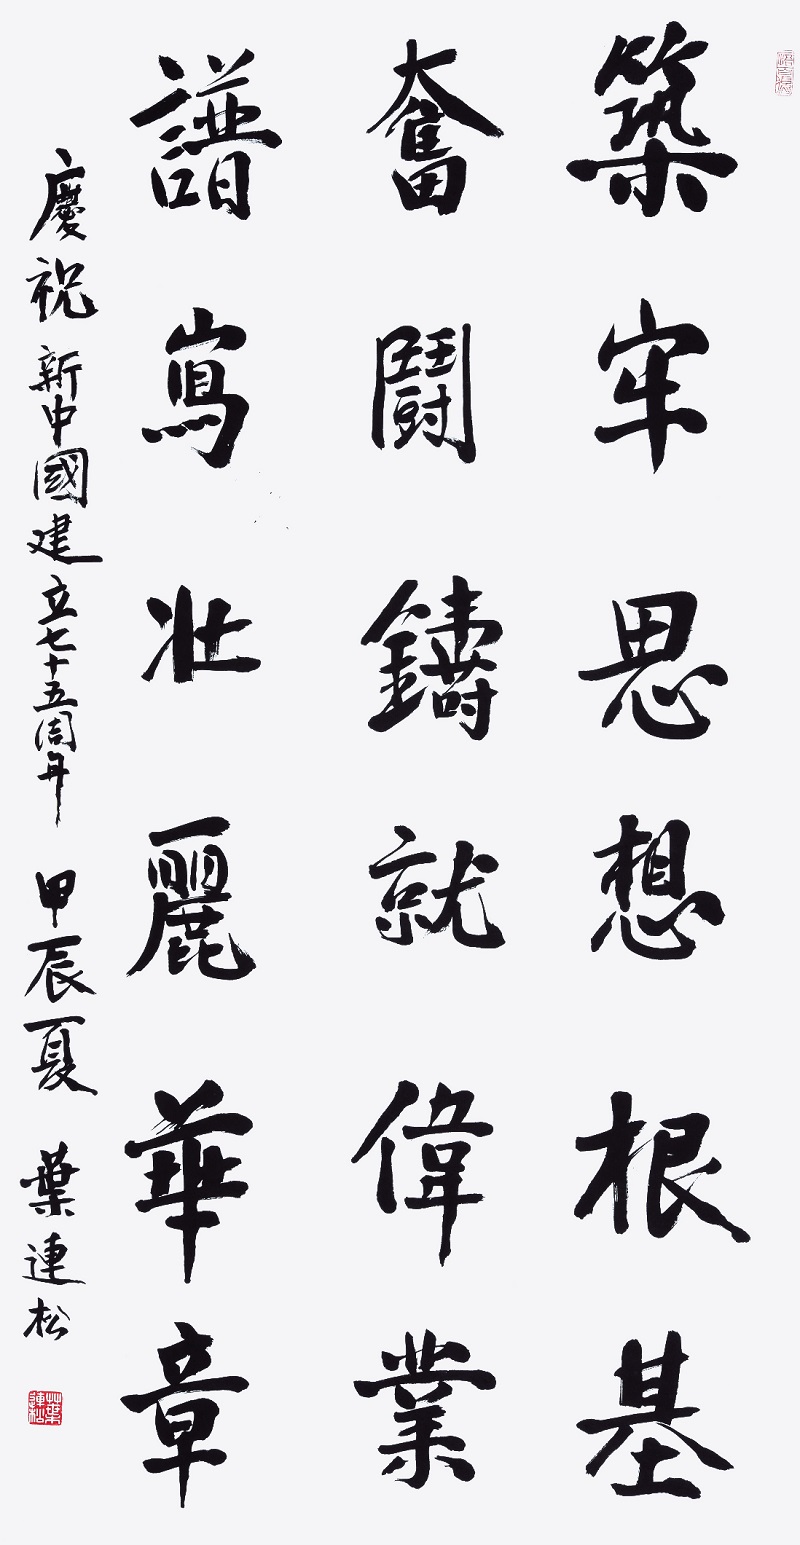 築牢思想根基
奮鬪鑄就偉業
譜寫壯麗華章
慶祝新中國建立七十五周年 甲辰夏 葉連松
葉連松